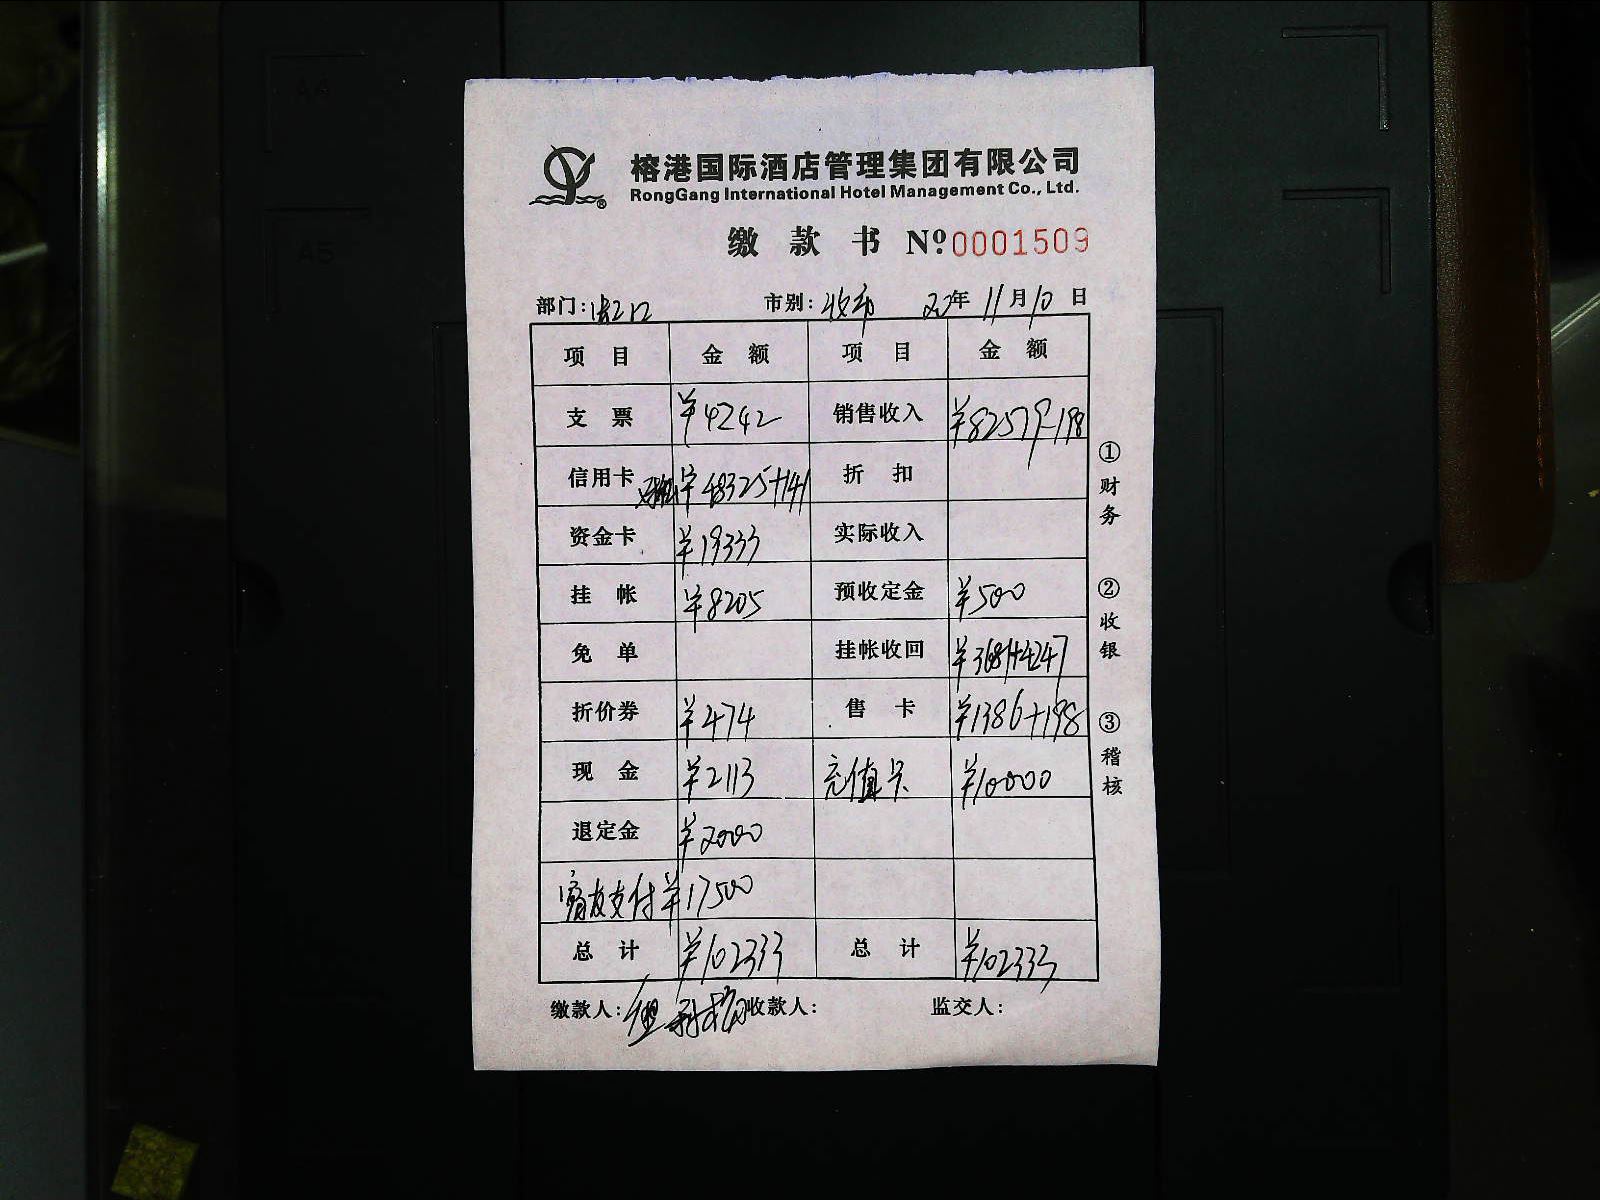 榕港国际酒店管理集团有限公司
RongGang International Hotel Management Co., Ltd.
缴款书 Nº0001509
部门: 市别:收市 年11月10日
项目 金额 项目 金额
支票 ¥4242 销售收入 ¥82519-198
信用卡 ¥48325+141 折扣
资金卡 ¥19333 实际收入
挂帐 ¥8205 预收定金 ¥500
免单 挂帐收回 ¥3681+4247
折价券 ¥474 售卡 ¥1386+198
现金 ¥2113 充值卡 ¥10000
退定金 ¥2000
支付 ¥17500
总计 ¥102333 总计 ¥102333
缴款人: 收款人: 监交人:
①财务
②收银
③稽核
A4
A5